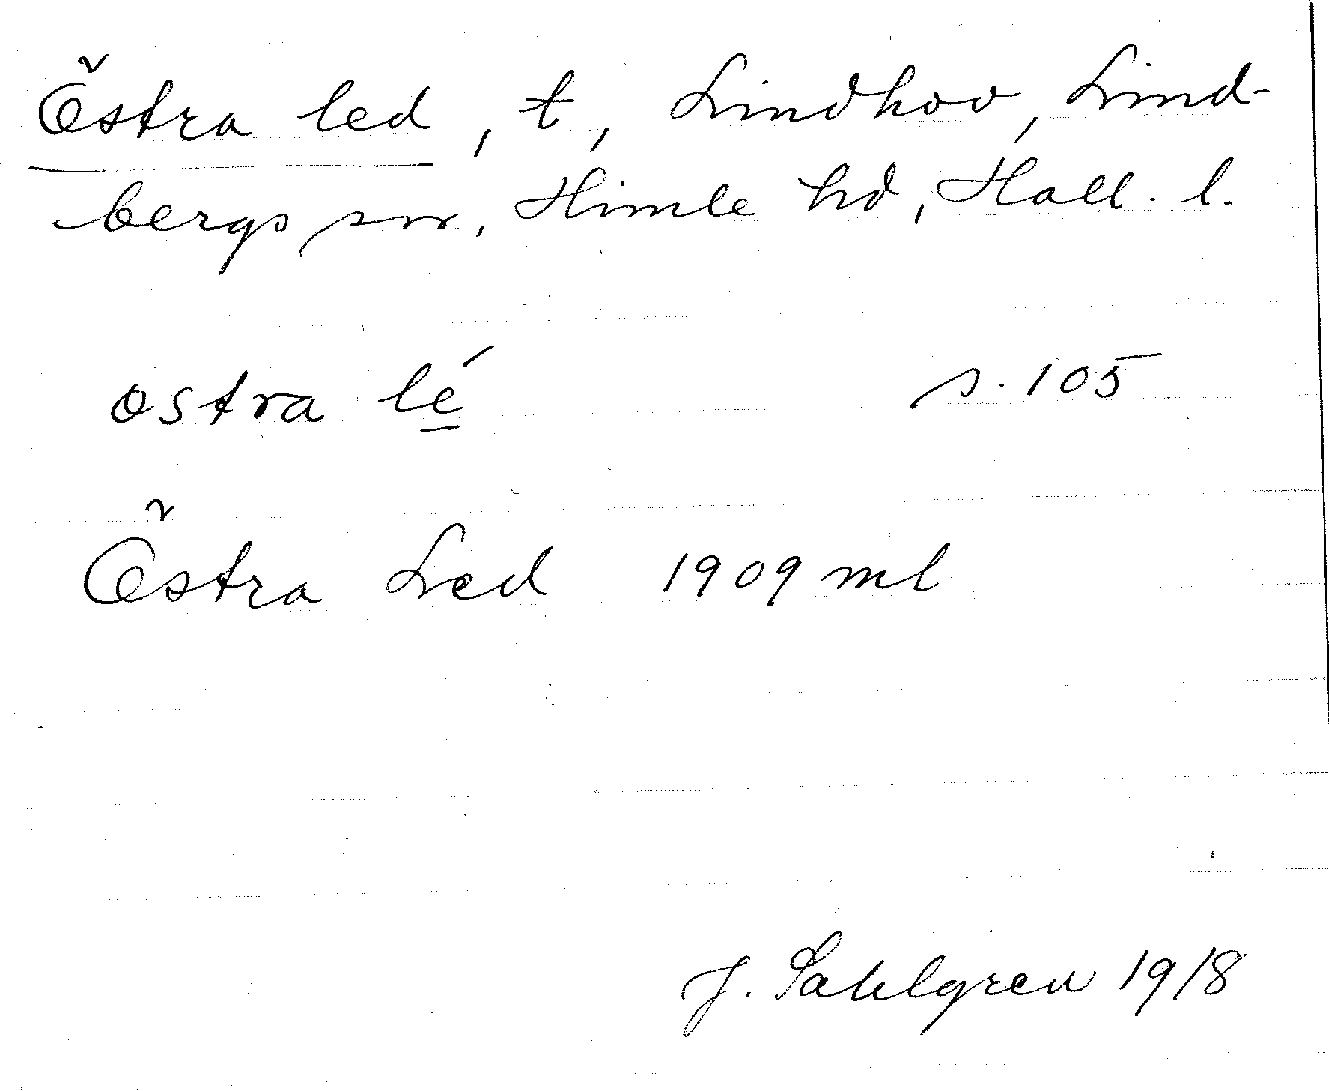 Östra led, t, Lindhov, Lind-
bergs sn, Himle hd, Hall. l.
ostra lé s. 105
Östra Led 1909 ml
J. Sahlgren 1918